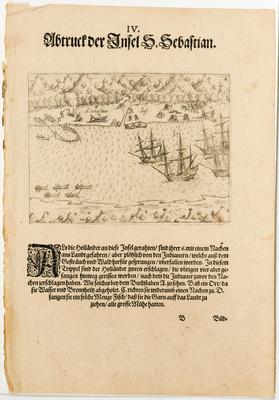 IV.
Abtruck der Insel S. Sebastian.
ALs die Holländer an diese Insel gerahten / sind ihrer 6. mit einem Nachen
ans Landt gefahren / aber plötzlich von den Indianern / welche auß dem
Gesträuch und Wald herfür gesprungen / uberfallen worden. In diesem
Trippel sind der Holländer zween erschlagen / die ubrigen vier aber ge-
fangen hinweg gerissen worden / nach dem die Indianer zuvor den Na-
chen zerschlagen haben. Wie solches bey dem Buchstaben A. zu sehen. B ist ein Ort / da
sie Wasser und Brennholtz abgeholet. C. richten sie widerumb einen Nachen zu. D.
fangen sie ein solche Menge Fisch / daß sie die Garn auff das Landt zu
ziehen / alle grosse Mühe hatten.
B
Bild-